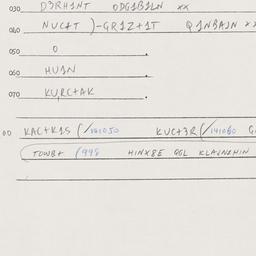 030 D3RH1NT ODG1B1LN XX
040 NUC+T )-GR1Z+1T Q1NBA1N XX
050 0 .
060 HU1N
070 KURC+AK .
00 KAC+K1S (/141050 KUC+3R(/141060 G
TOWB+ (998 HINX8E QGL KLA1N1HIN